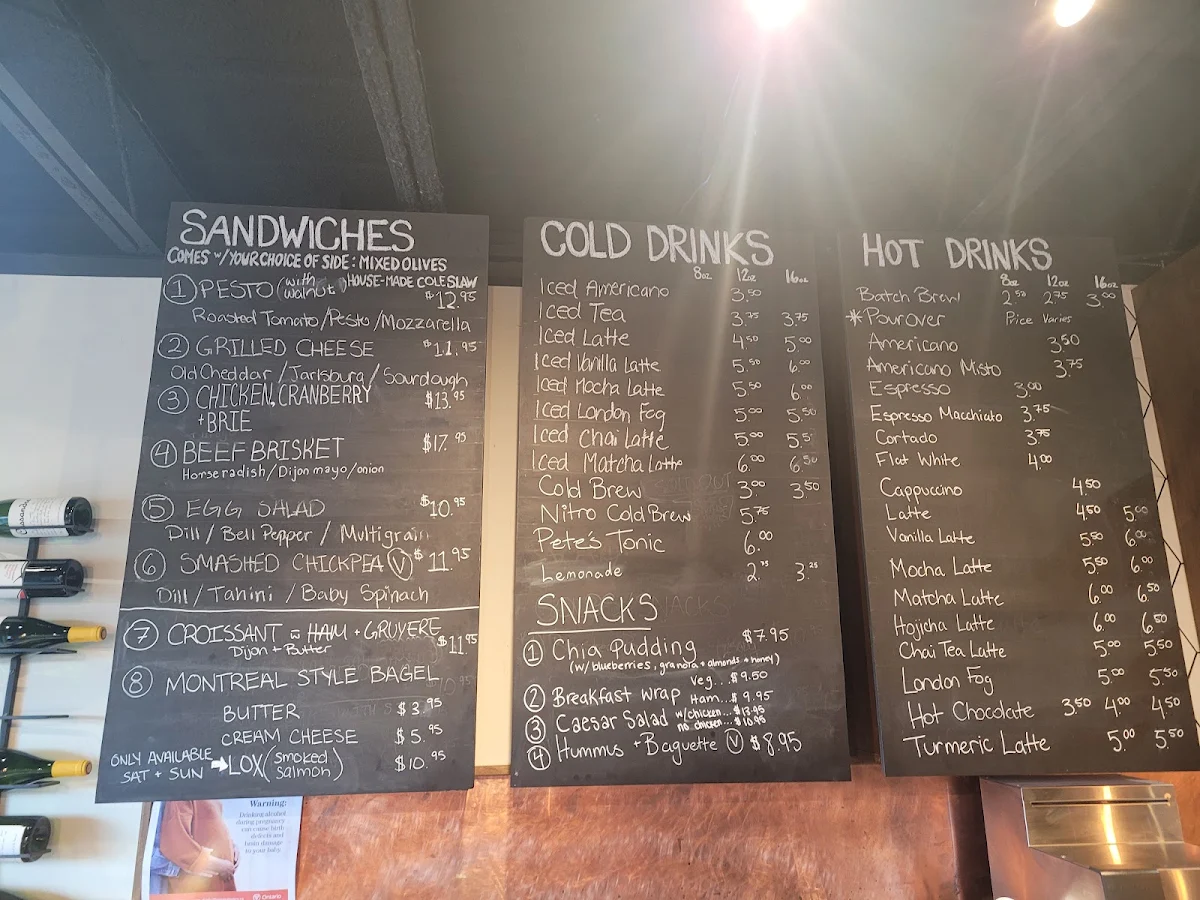 SANDWICHES
COMES W/ YOUR CHOICE OF SIDE: MIXED OLIVES
HOUSE-MADE COLESLAW
① PESTO (with walnut) $12.95
Roasted Tomato/Pesto/Mozzarella
② GRILLED CHEESE $11.95
Old Cheddar / Jarlsburg / Sourdough
③ CHICKEN, CRANBERRY $13.95
+ BRIE
④ BEEF BRISKET $17.95
Horseradish/Dijon mayo/onion
⑤ EGG SALAD $10.95
Dill / Bell Pepper / Multigrain
⑥ SMASHED CHICKPEA Ⓥ $11.95
Dill / Tahini / Baby Spinach
⑦ CROISSANT w̄ HAM + GRUYERE $11.95
Dijon + Butter
⑧ MONTREAL STYLE BAGEL
BUTTER $3.95
CREAM CHEESE $5.95
ONLY AVAILABLE
SAT + SUN → LOX (smoked salmon) $10.95
COLD DRINKS
8oz 12oz 16oz
Iced Americano 3.50
Iced Tea 3.75 3.75
Iced Latte 4.50 5.00
Iced Vanilla Latte 5.50 6.00
Iced Mocha Latte 5.50 6.00
Iced London Fog 5.00 5.50
Iced Chai Latte 5.00 5.5
Iced Matcha Latte 6.00 6.50
Cold Brew 3.00 3.50
Nitro Cold Brew 5.75
Pete's Tonic 6.00
Lemonade 2.75 3.25
SNACKS
① Chia Pudding $7.95
(w/ blueberries, granola + almonds + honey)
② Breakfast wrap veg.. $9.50
Ham... $9.95
③ Caesar Salad w/chicken... $13.95
no chicken... $10.95
④ Hummus + Baguette Ⓥ $8.95
HOT DRINKS
8oz 12oz 16oz
Batch Brew 2.50 2.75 3.00
*Pour Over Price Varies
Americano 3.50
Americano Misto 3.75
Espresso 3.00
Espresso Macchiato 3.75
Cortado 3.75
Flat White 4.00
Cappuccino 4.50
Latte 4.50 5.00
Vanilla Latte 5.50 6.00
Mocha Latte 5.50 6.00
Matcha Latte 6.00 6.50
Hojicha Latte 6.00 6.50
Chai Tea Latte 5.00 5.50
London Fog 5.00 5.50
Hot Chocolate 3.50 4.00 4.50
Turmeric Latte 5.00 5.50
Warning:
Drinking alcohol
during pregnancy
can cause birth
defects and
brain damage
to your baby.
Ontario